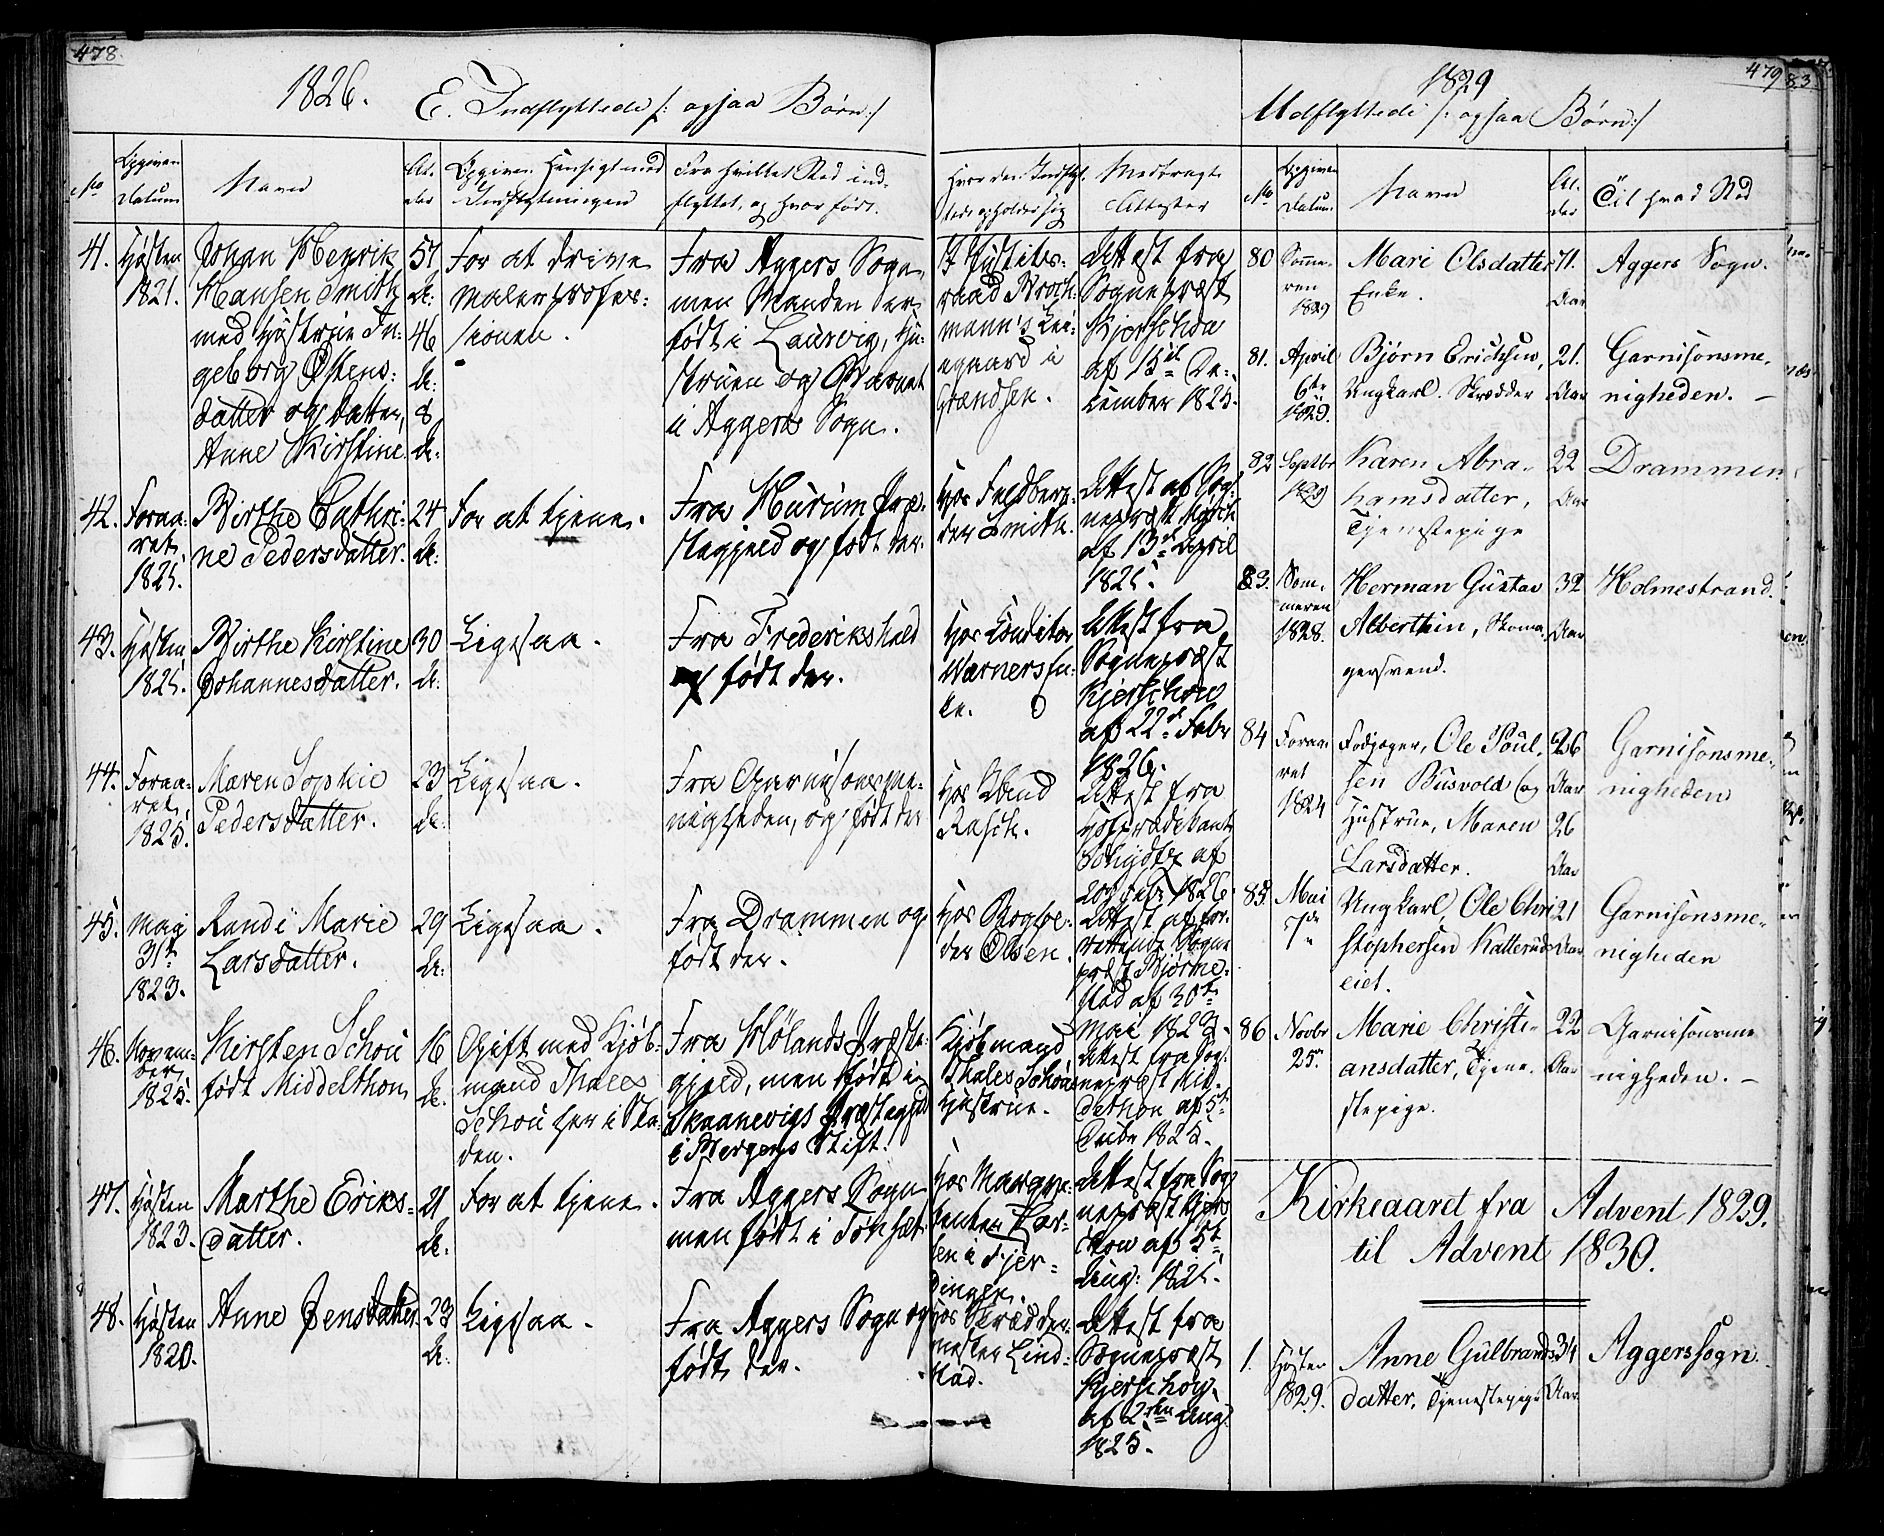 478.
1826. E. Indflyttede /: ogsaa Børn :/
No
Opgiven Datum
Navn
Alder
Opgiven Hensigt med Indflytningen
Fra hvilket Sted indflyttet, og hvor født.
Hvor den Indflyttede opholder sig
Medbragte Attester
41.
Høsten
1821.
Johan Henrik
Hansen Smith
med Hustrue In-
geborg Østens-
datter og datter,
Anne Kirstine
57
A:
46
A:
8
A:
For at drive
Malerprofes-
sionen.
Fra Aggers Sogn
men Manden er
født i Laurvig, Hu-
struen og Barnet
i Aggers Sogn.
I Justits-
raad Broch-
mann's Løi-
egaard i
Grændsen.
Attest fra
Sognepræst
Kjerschow
af 15de De-
cember 1825.
42.
Foraa-
ret
1825.
Birthe Cathri-
ne Pedersdatter.
24
A:
For at tjene.
Fra Hurum Præ-
stegjeld og født der.
Hos Feldbere-
der Smith.
Attest af Sog-
nepræst
af 13de April
1825.
43.
Høsten
1825.
Birthe Kirstine
Johannesdatter.
30
A:
Ligesaa.
Fra Frederikshald
og født der.
Hos Conditor
Warners En-
ke.
Attest fra
Sognepræst
Kjerschow
af 22de Febr
1826.
44.
Foraa-
ret
1825.
Maren Sophie
Pedersdatter.
23
A:
Ligesaa.
Fra Garnisonsme-
nigheden, og født der
Hos
Rasch.
Attest fra
Schydtz af
20de Febr 1826
45.
Maj
31te
1823.
Randi Marie
Larsdatter.
29
A:
Ligesaa.
Fra Drammen og
født der.
Hos Bogføe-
der Olsen.
Attest af for-
rettende Sogne
præst Bjørne-
stad af 30te
Mai 1823.
46.
Novem-
ber
1825.
Kirsten Schou
født Middelthon
16
A:
Gift med Kjøb-
mand Thales
Schou her i Sta-
den.
Fra Hølands Præste-
gjeld, men født i
Skaanevigs Præstegjeld
i Bergens Stift.
Kjøbmand
Thales Schous
Hustrue.
Attest fra Sog-
nepræst Mid-
delthon af 5te
Decbr 1825.
47.
Høsten
1823.
Marthe Eriks-
datter.
21
A:
For at tjene.
Fra Aggers Sogn
men født i Tonset
Hos Marque-
tenter Lar-
sen i Fjer-
dingen.
Attest fra Sog
nepræst Kjer-
schow af 5te
Aug: 1825.
48.
Høsten
1820.
Anne Jensdatter
23
A:
Ligesaa.
Fra Aggers Sogn og
født der.
Hos Skrædder-
mester Lind-
stad.
Attest fra
Sognepræst
Kjerschow
af 2den Aug
1825.
479
83
1829
Udflyttede /: ogsaa Børn :/
No
Opgiven Datum
Navn
Alder
Til hvad Sted
80
Somme-
ren
1829
Mari Olsdatter
Enke.
71.
Aar
Aggers Sogn.
81.
April
6te
1829.
Bjørn Erichsen,
Ungkarl. Skrædder
21.
Aar
Garnisonsme-
nigheden. –
82
Septbr
1829
Karen Abra-
hamsdatter,
Tjenestepige
22
Aar
Drammen
83.
Som-
meren
1828.
Herman Gustav
Alberthin, Skoma-
gersvend.
32
Aar
Holmestrand.
84
Foraa-
ret
1824
Fodjæger, Ole Poul-
sen Busvold og
Hustrue, Maren
Larsdatter.
26
Aar
26
Aar
Garnisonsme-
nigheden
85.
Mai
7de
Ungkarl, Ole Chri
stophersen Katterud-
eiet.
21
Aar
Garnisonsme-
nigheden
86
Novbr
25.
Marie Christi-
ansdatter, Tjene-
stepige.
22
Aar
Garnisonsme
nigheden. –
Kirkeaaret fra Advent 1829.
til Advent 1830.
1.
Høsten
1829.
Anne Gulbrands-
datter, Tjenestepige
34
Aar
Aggers Sogn.